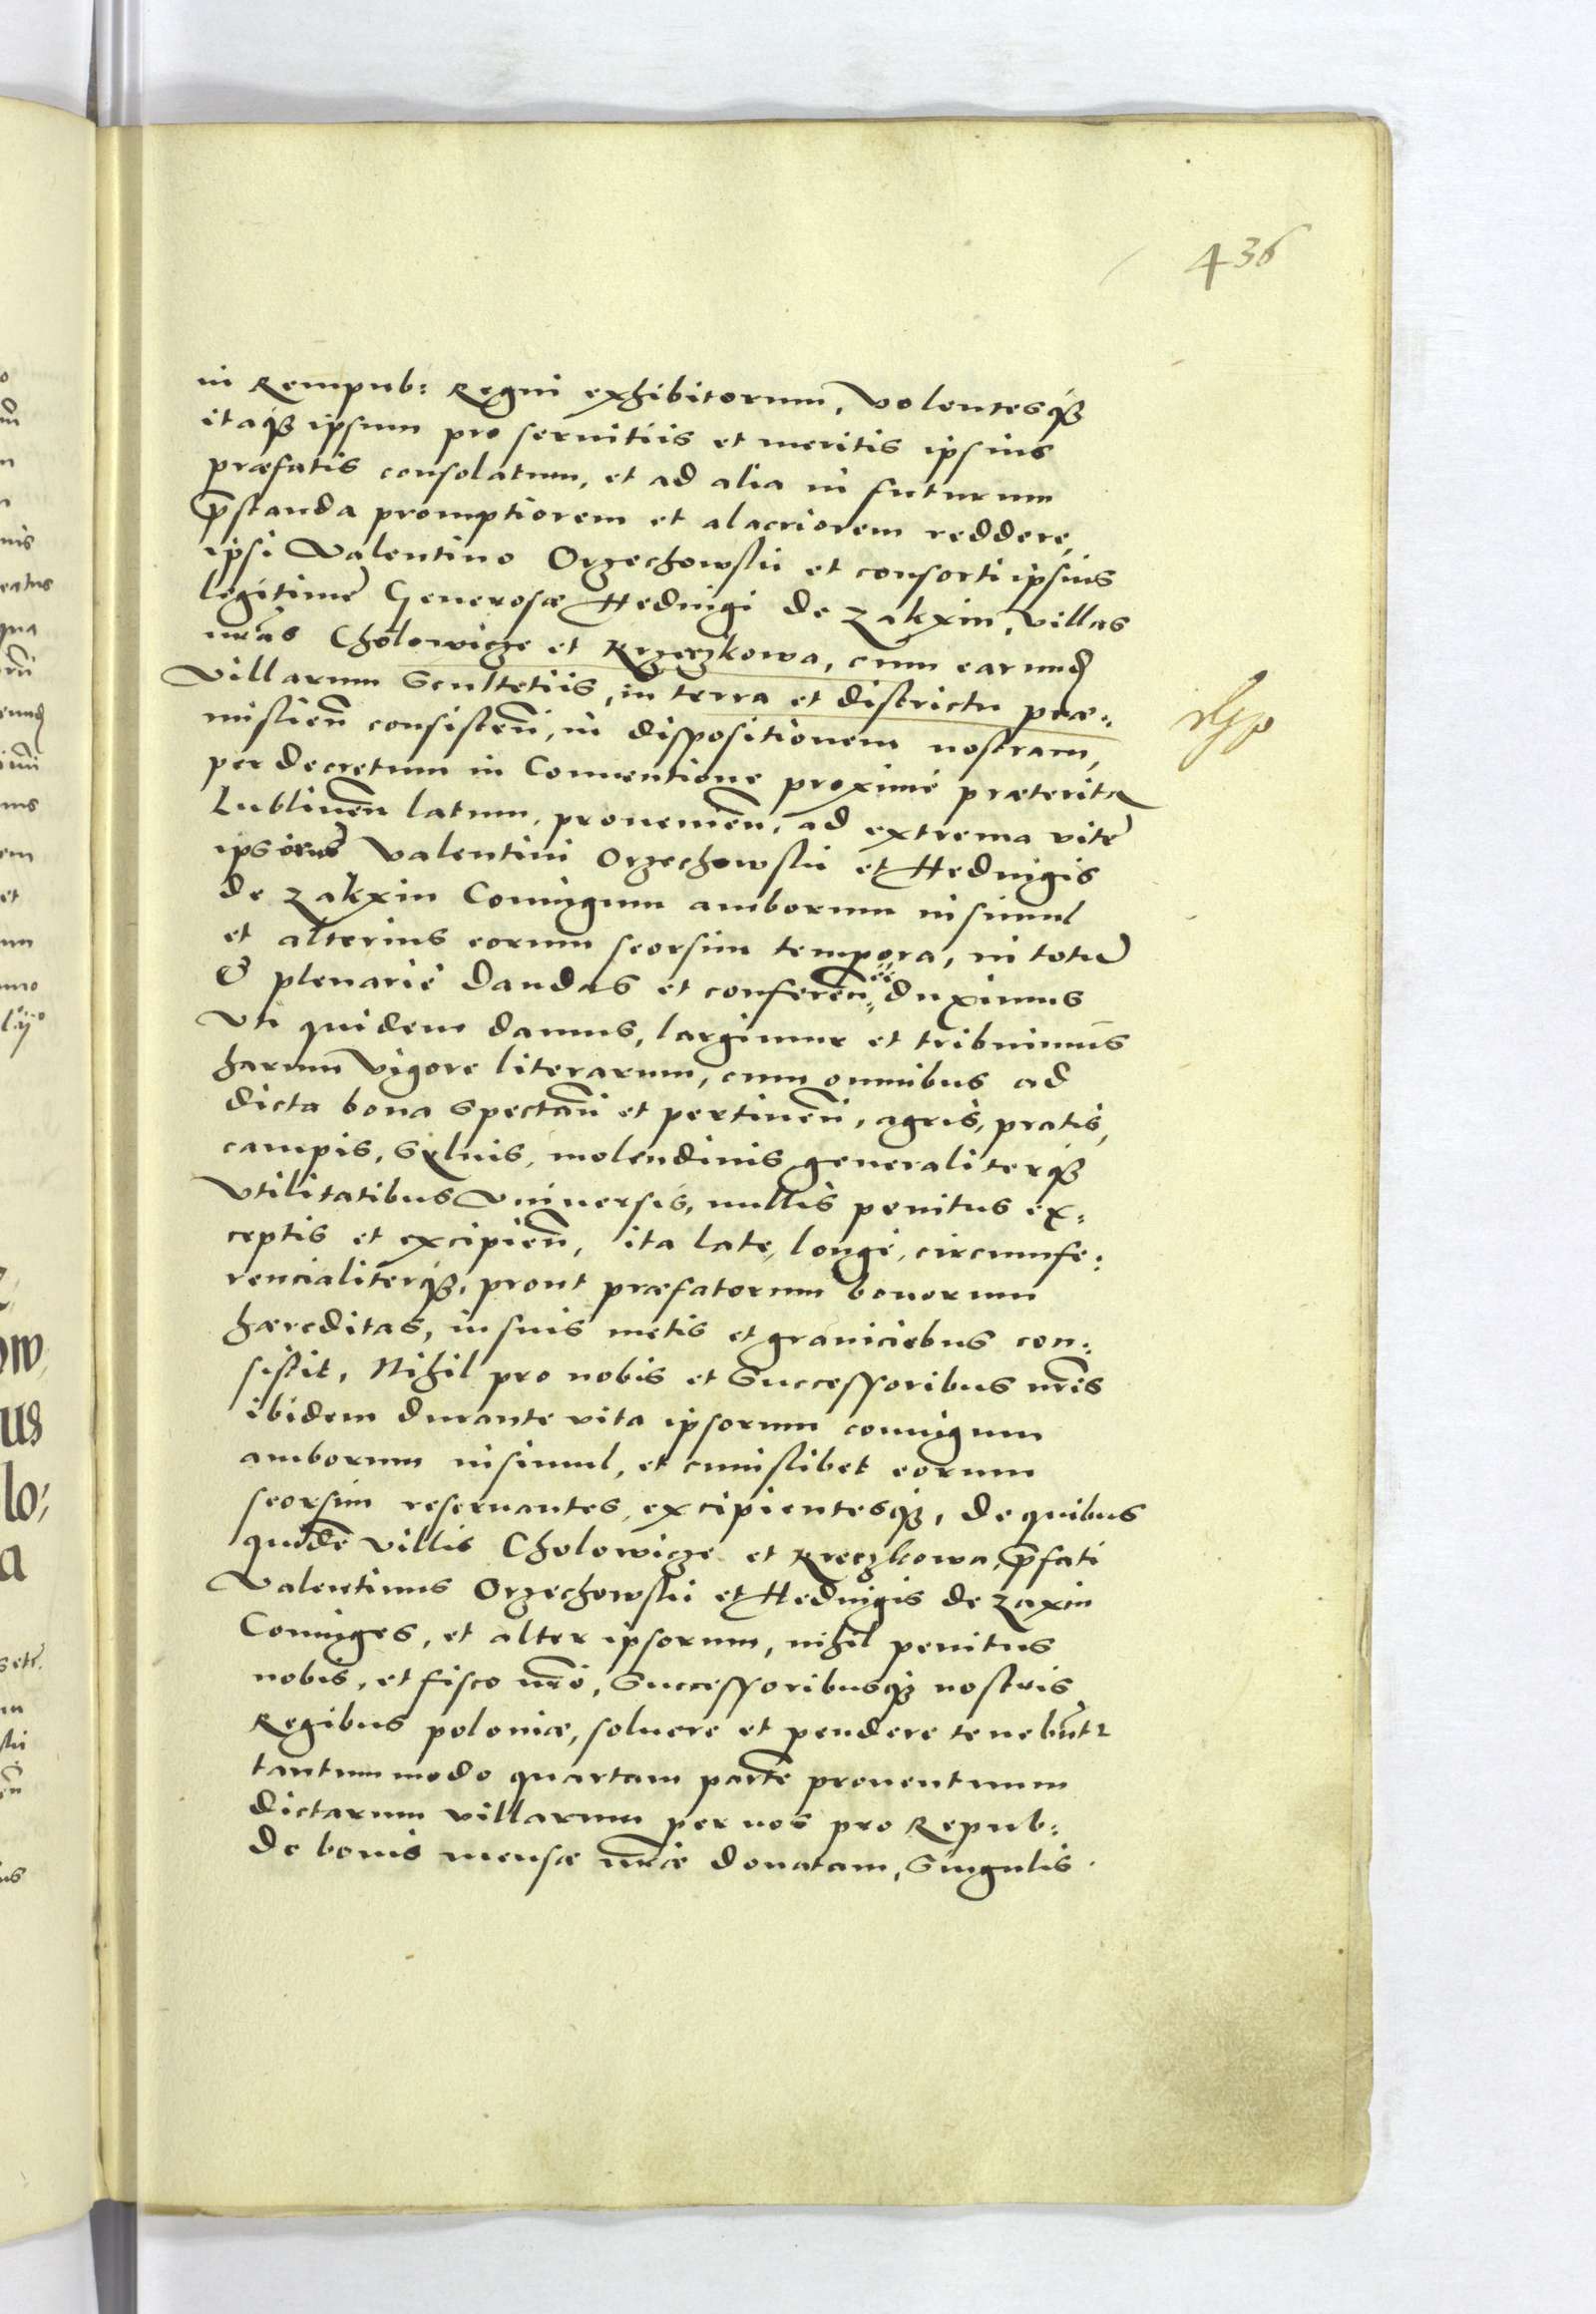 436
in Rempub: Regni exhibitorum, Volentesq₃
itaq₃ ipsum pro seruitiis et meritis ipsius
præfatis consolatum, et ad alia in futurum
p̄standa promptiorem et alacriorem reddere,
ipsi Valentino Orzechowskii et consorti ipsius
legitimę Generosæ Heduigi de Zakxin, villas
nr̄as Cholowicze et Krzeczkowa, cum earund
Villarum Scultetiis, in terra et districtu præ:
mislien̄ consisten̄, in dispositionem nostram,
per decretum in Conuentione proximè præterita
Lublinen̄ latum, prouenien̄, ad extrema vitę
ipsorū Valentini Orzechowskii et Heduigis
de Zakxin Coniugum amborum insimul
et alterius eorum seorsim tempora, in totū
& plenariè dandas et conferen̄: ee duximus
Vti quidem damus, largimur et tribuimus
harum vigore literarum, cum omnibus ad
dicta bona spectan̄ et pertinen̄, agris, pratis,
campis, syluis, molendinis generaliterq₃
Vtilitatibus Vniuersis, nullis penitus ex:
ceptis et excipien̄, ita late, longè, circumfe:
rencialiterq₃, prout præfatorum bonorum
hæreditas, in suis metis et graniciebus con:
sistit, Nihil pro nobis et Successoribus nr̄is
ibidem durante vita ipsorum coniugum
amborum insimul, et cuiuslibet eorum
seorsim reseruantes, excipientesq₃, de quibus
quidē villis Cholowicze et Kreczkowa, p̄fati
Valentinus Orzechowskii et Heduigis de Zaxin
Coniuges, et alter ipsorum, nihil penitus
nobis, et fisco nr̄o, Successoribusq₃ nostris
Regibus poloniæ, soluere et pendere tenebūtr
tantummodo quartam partē prouentuum
dictarum villarum per nos pro Repub:
de bonis mensæ nr̄æ donatam, Singulis